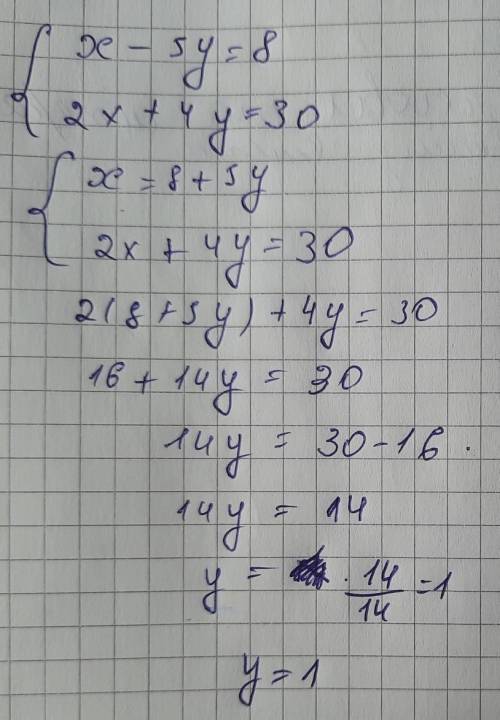 x - 5y = 8
2x + 4y = 30
x = 8 + 5y
2x + 4y = 30
2(8 + 5y) + 4y = 30
16 + 14y = 30
14y = 30 - 16.
14y = 14
y = . 14/14 = 1
y = 1